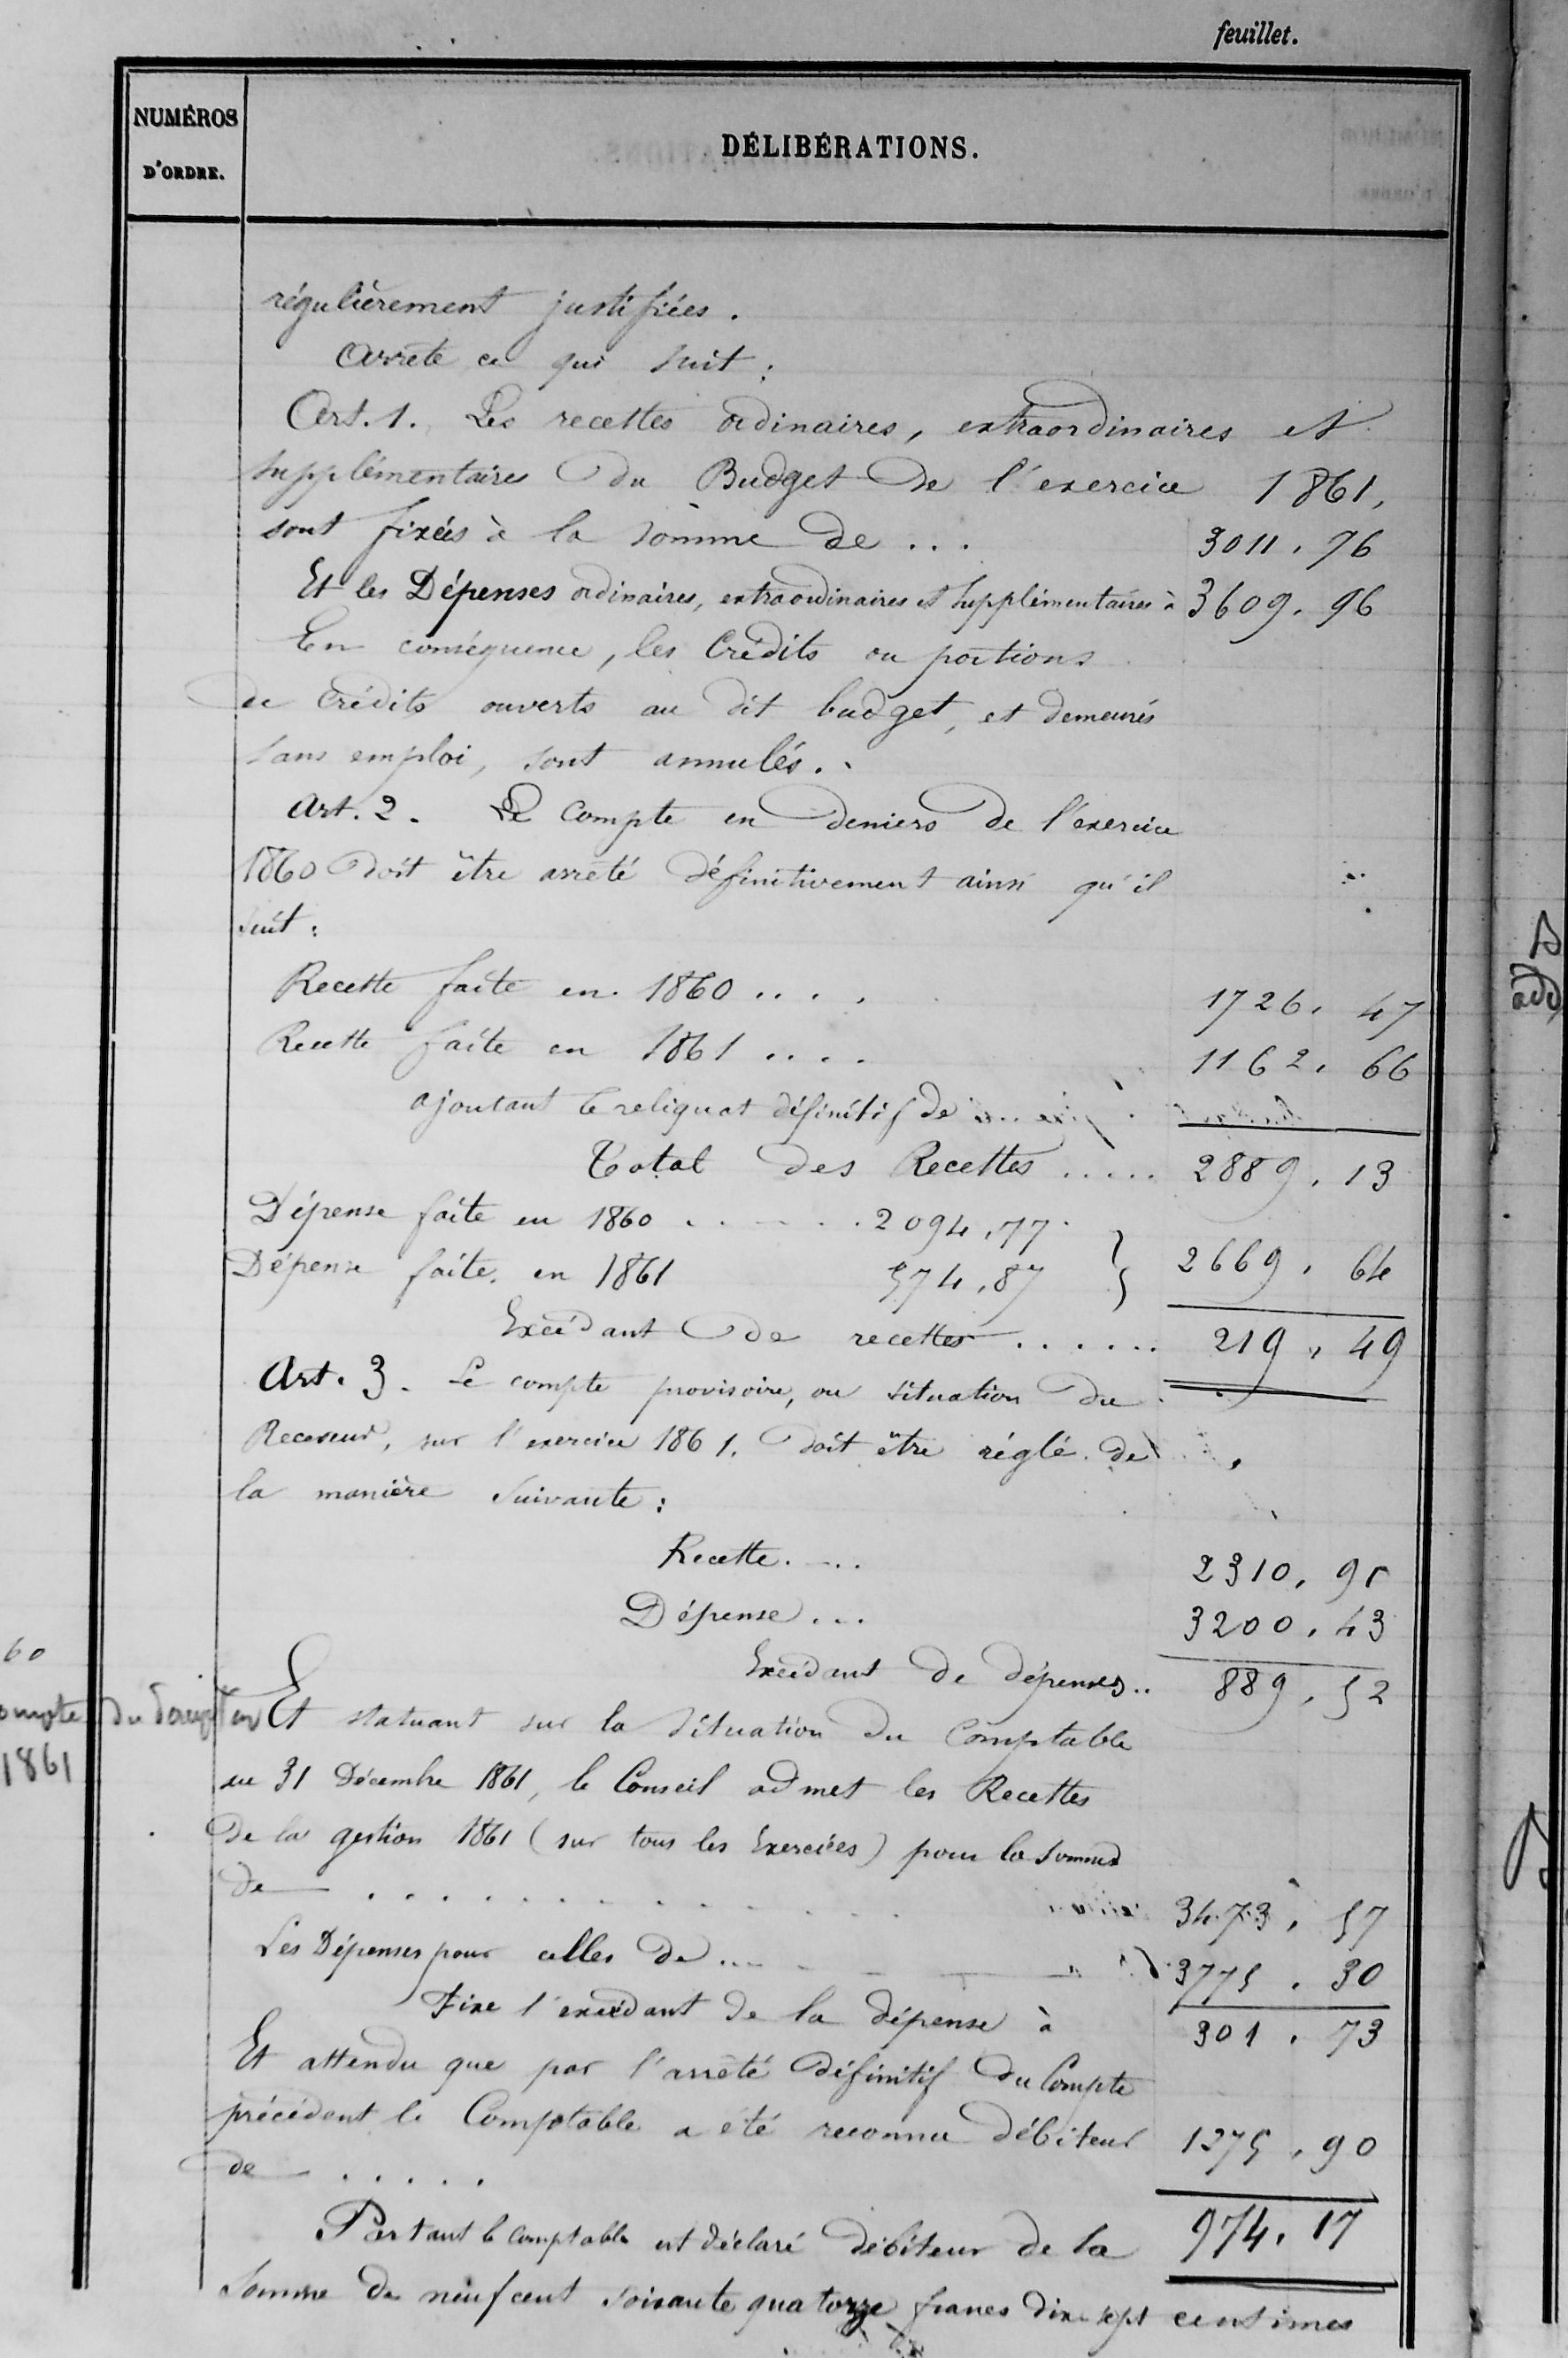 feuillet.
NUMÉROS
D'ORDRE.
DÉLIBÉRATIONS.
régulièrement justifiées.
Arrête ce qui suit :
Art. 1. Les recettes ordinaires, extraordinaires et
supplémentaires du Budget de l'exercice 1861,
sont fixées à la somme de ... 3011. 76
Et les Dépenses ordinaires, extraordinaires et supplémentaires à 3609. 96
En conséquence, les Crédits ou portions
de Crédits ouverts au dit budget, et demeurés
sans emploi, sont annulés.
Art. 2. Le Compte en deniers de l'exercice
1860 doit être arrêté définitivement ainsi qu'il
suit :
Recette faite en 1860 .... 1726. 47
Recette faite en 1861 .... 1162. 66
ajoutant le reliquat définitif de
Total des Recettes ..... 2889. 13
Dépense faite en 1860 ..... 2094.77
Dépense faite en 1861 574.87 } 2669. 64
Excédant de recettes ...... 219. 49
Art. 3. Le compte provisoire, ou situation du
Receveur, sur l'exercice 1861. doit être réglé de
la manière suivante :
Recette.... 2310. 91
Dépense... 3200. 43
Excédant de dépenses.. 889. 52
60
ompte du
1861
Et statuant sur la situation du Comptable
au 31 Décembre 1861, le Conseil admet les Recettes
de la gestion 1861 (sur tous les Exercices) pour la somme
de ............ 3473. 57
Les Dépenses pour celles de ... 3775. 30
Fixe l'excédant de la dépense à 301. 73
Et attendu que par l'arrêté définitif du Compte
précédent le Comptable a été reconnu débiteur
de ..... 1275. 90
Partant le comptable est déclaré débiteur de la 974. 17
Somme de neuf cent soixante quatorze francs dix sept centimes